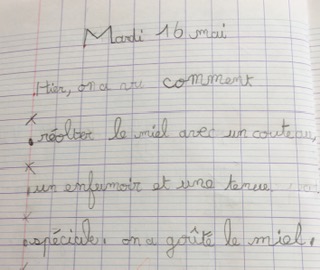 Mardi 16 mai
Hier, on a vu comment
réolter le miel avec un couteau,
un enfumoir et une tenue
spéciale. on a goûté le miel.